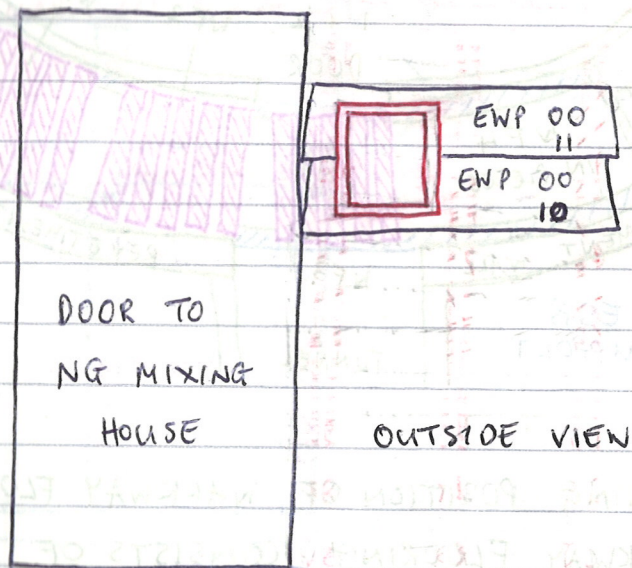 EWP 00
11
EWP 00
10
DOOR TO
NG MIXING
HOUSE
OUTSIDE VIEW